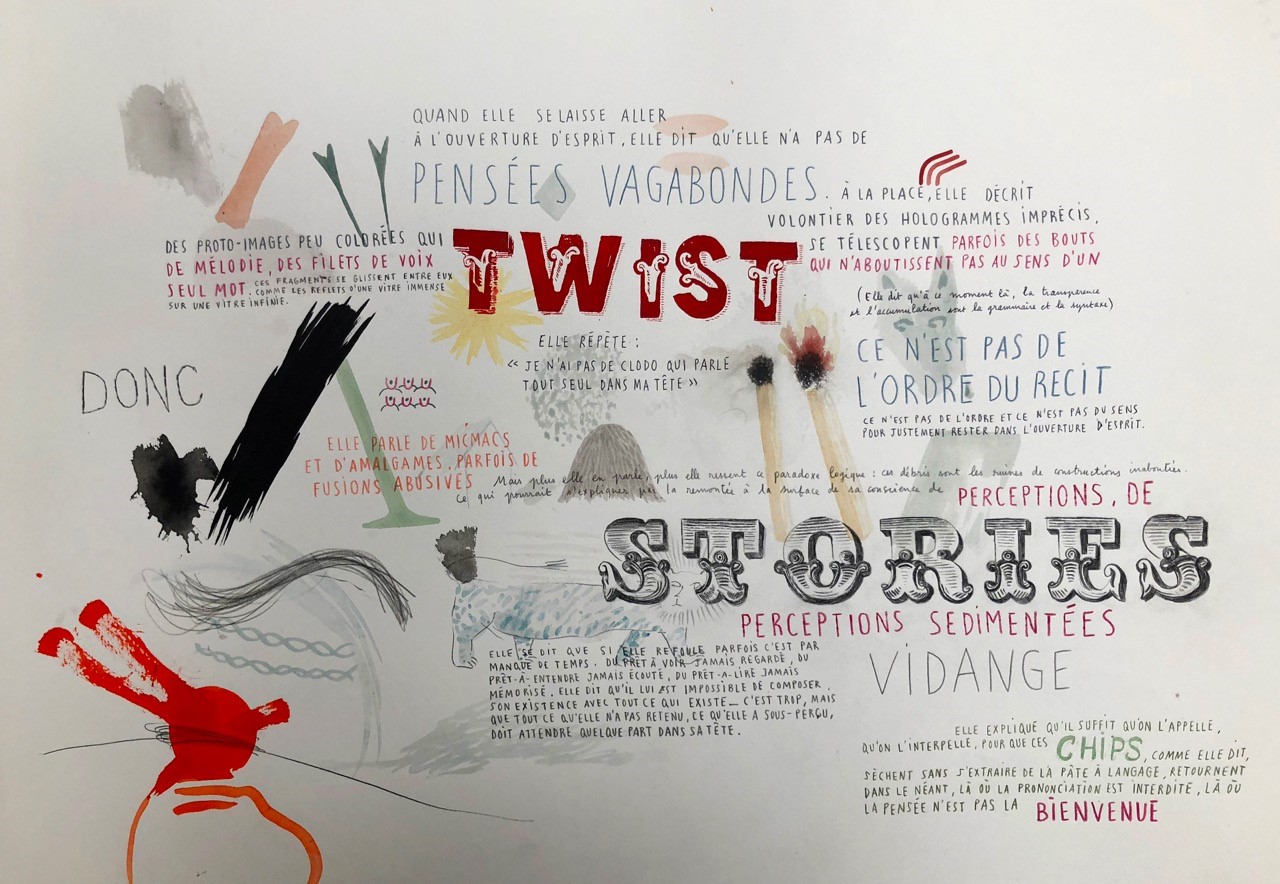 QUAND ELLE SE LAISSE ALLER
À L'OUVERTURE D'ESPRIT, ELLE DIT QU'ELLE N'A PAS DE
PENSÉES VAGABONDES. À LA PLACE, ELLE DÉCRIT
VOLONTIER DES HOLOGRAMMES IMPRÉCIS,
DES PROTO-IMAGES PEU COLORÉES QUI
TWIST
SE TÉLESCOPENT PARFOIS DES BOUTS
DE MÉLODIE, DES FILETS DE VOIX
QUI N'ABOUTISSENT PAS AU SENS D'UN
SEUL MOT. CES FRAGMENTS SE GLISSENT ENTRE EUX
COMME LES REFLETS D'UNE VITRE IMMENSE
SUR UNE VITRE INFINIE.
(Elle dit qu'à ce moment là, la transparence
et l'accumulation sont la grammaire et la syntaxe)
ELLE RÉPÈTE :
« JE N'AI PAS DE CLODO QUI PARLE
TOUT SEUL DANS MA TÊTE »
CE N'EST PAS DE
L'ORDRE DU RECIT
CE N'EST PAS DE L'ORDRE ET CE N'EST PAS DU SENS
POUR JUSTEMENT RESTER DANS L'OUVERTURE D'ESPRIT.
DONC
ELLE PARLE DE MICMACS
ET D'AMALGAMES, PARFOIS DE
FUSIONS ABUSIVES
Mais plus elle en parle, plus elle ressent ce paradoxe logique : ces débris sont les ruines de constructions inabouties.
ce qui pourrait s'expliquer par la remontée à la surface de sa conscience de PERCEPTIONS, DE
STORIES
PERCEPTIONS SEDIMENTÉES
ELLE SE DIT QUE SI ELLE REFOULE PARFOIS C'EST PAR
MANQUE DE TEMPS. DU PRÊT À VOIR JAMAIS REGARDÉ, DU
PRÊT-À-ENTENDRE JAMAIS ÉCOUTÉ, DU PRÊT-A-LIRE JAMAIS
MÉMORISÉ. ELLE DIT QU'IL LUI EST IMPOSSIBLE DE COMPOSER
SON EXISTENCE AVEC TOUT CE QUI EXISTE_ C'EST TROP, MAIS
QUE TOUT CE QU'ELLE N'A PAS RETENU, CE QU'ELLE A SOUS-PERÇU,
DOIT ATTENDRE QUELQUE PART DANS SA TÊTE.
VIDANGE
ELLE EXPLIQUE QU'IL SUFFIT QU'ON L'APPELLE,
QU'ON L'INTERPELLE, POUR QUE CES CHIPS, COMME ELLE DIT,
SÈCHENT SANS S'EXTRAIRE DE LA PÂTE À LANGAGE, RETOURNENT
DANS LE NÉANT, LÀ OÙ LA PRONONCIATION EST INTERDITE, LÀ OÙ
LA PENSÉE N'EST PAS LA BIENVENUE